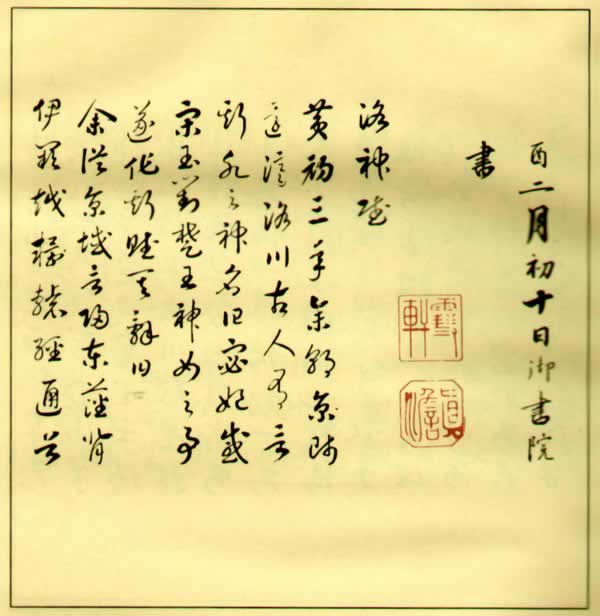 酉二月初十日御書院
書
雪軒
洛神賦
黄初三年余朝京師
還濟洛川古人有言
斯水之神名曰宓妃感
宋玉對楚王神女之事
遂作斯賦其辭曰
余從京域言歸東藩背
伊闕越轘轅經通谷